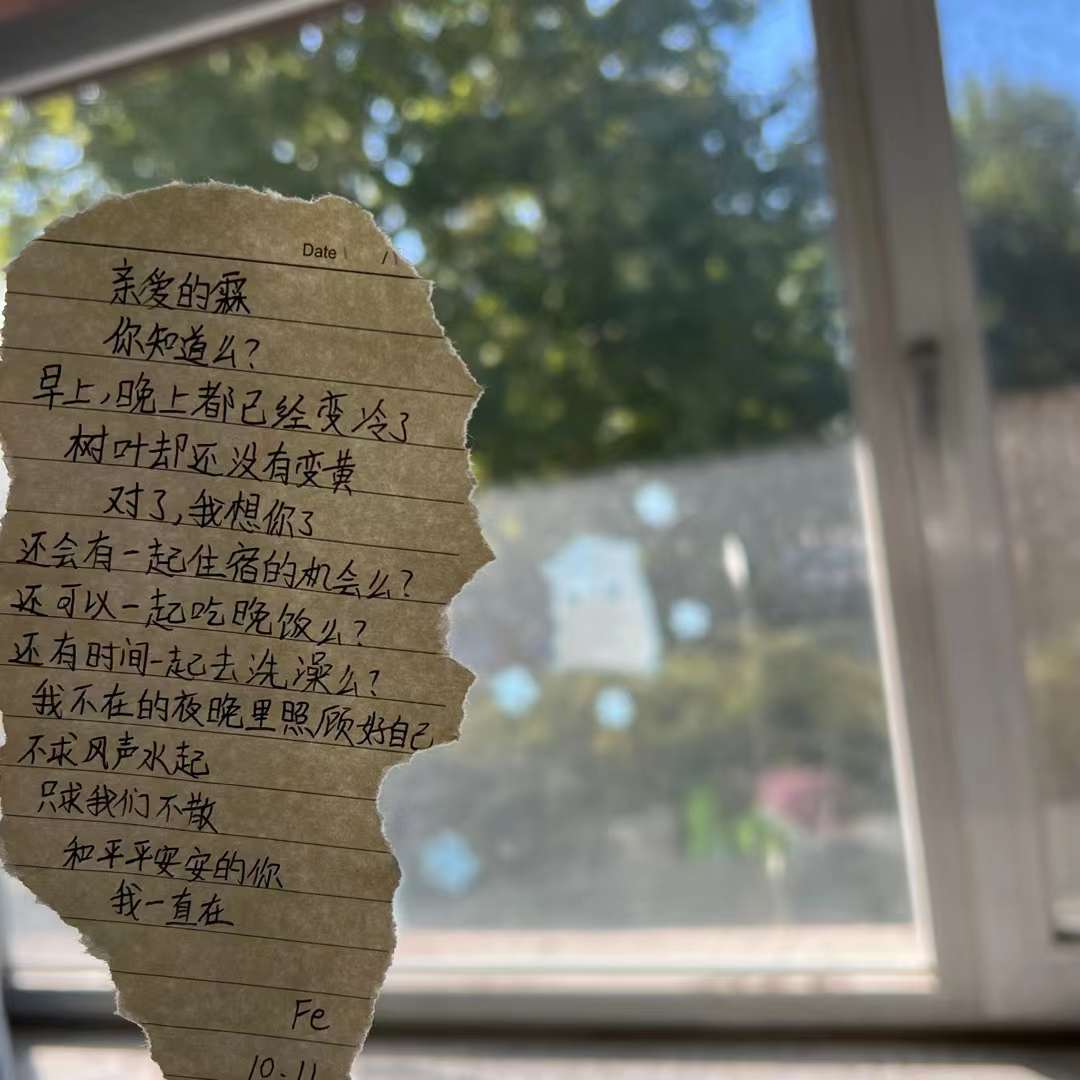 Date / /
亲爱的霖
你知道么?
早上,晚上都已经变冷了
树叶却还没有变黄
对了,我想你了
还会有一起住宿的机会么?
还可以一起吃晚饭么?
还有时间一起去洗澡么?
我不在的夜晚里照顾好自己
不求风声水起
只求我们不散
和平平安安的你
我一直在
Fe
10.11